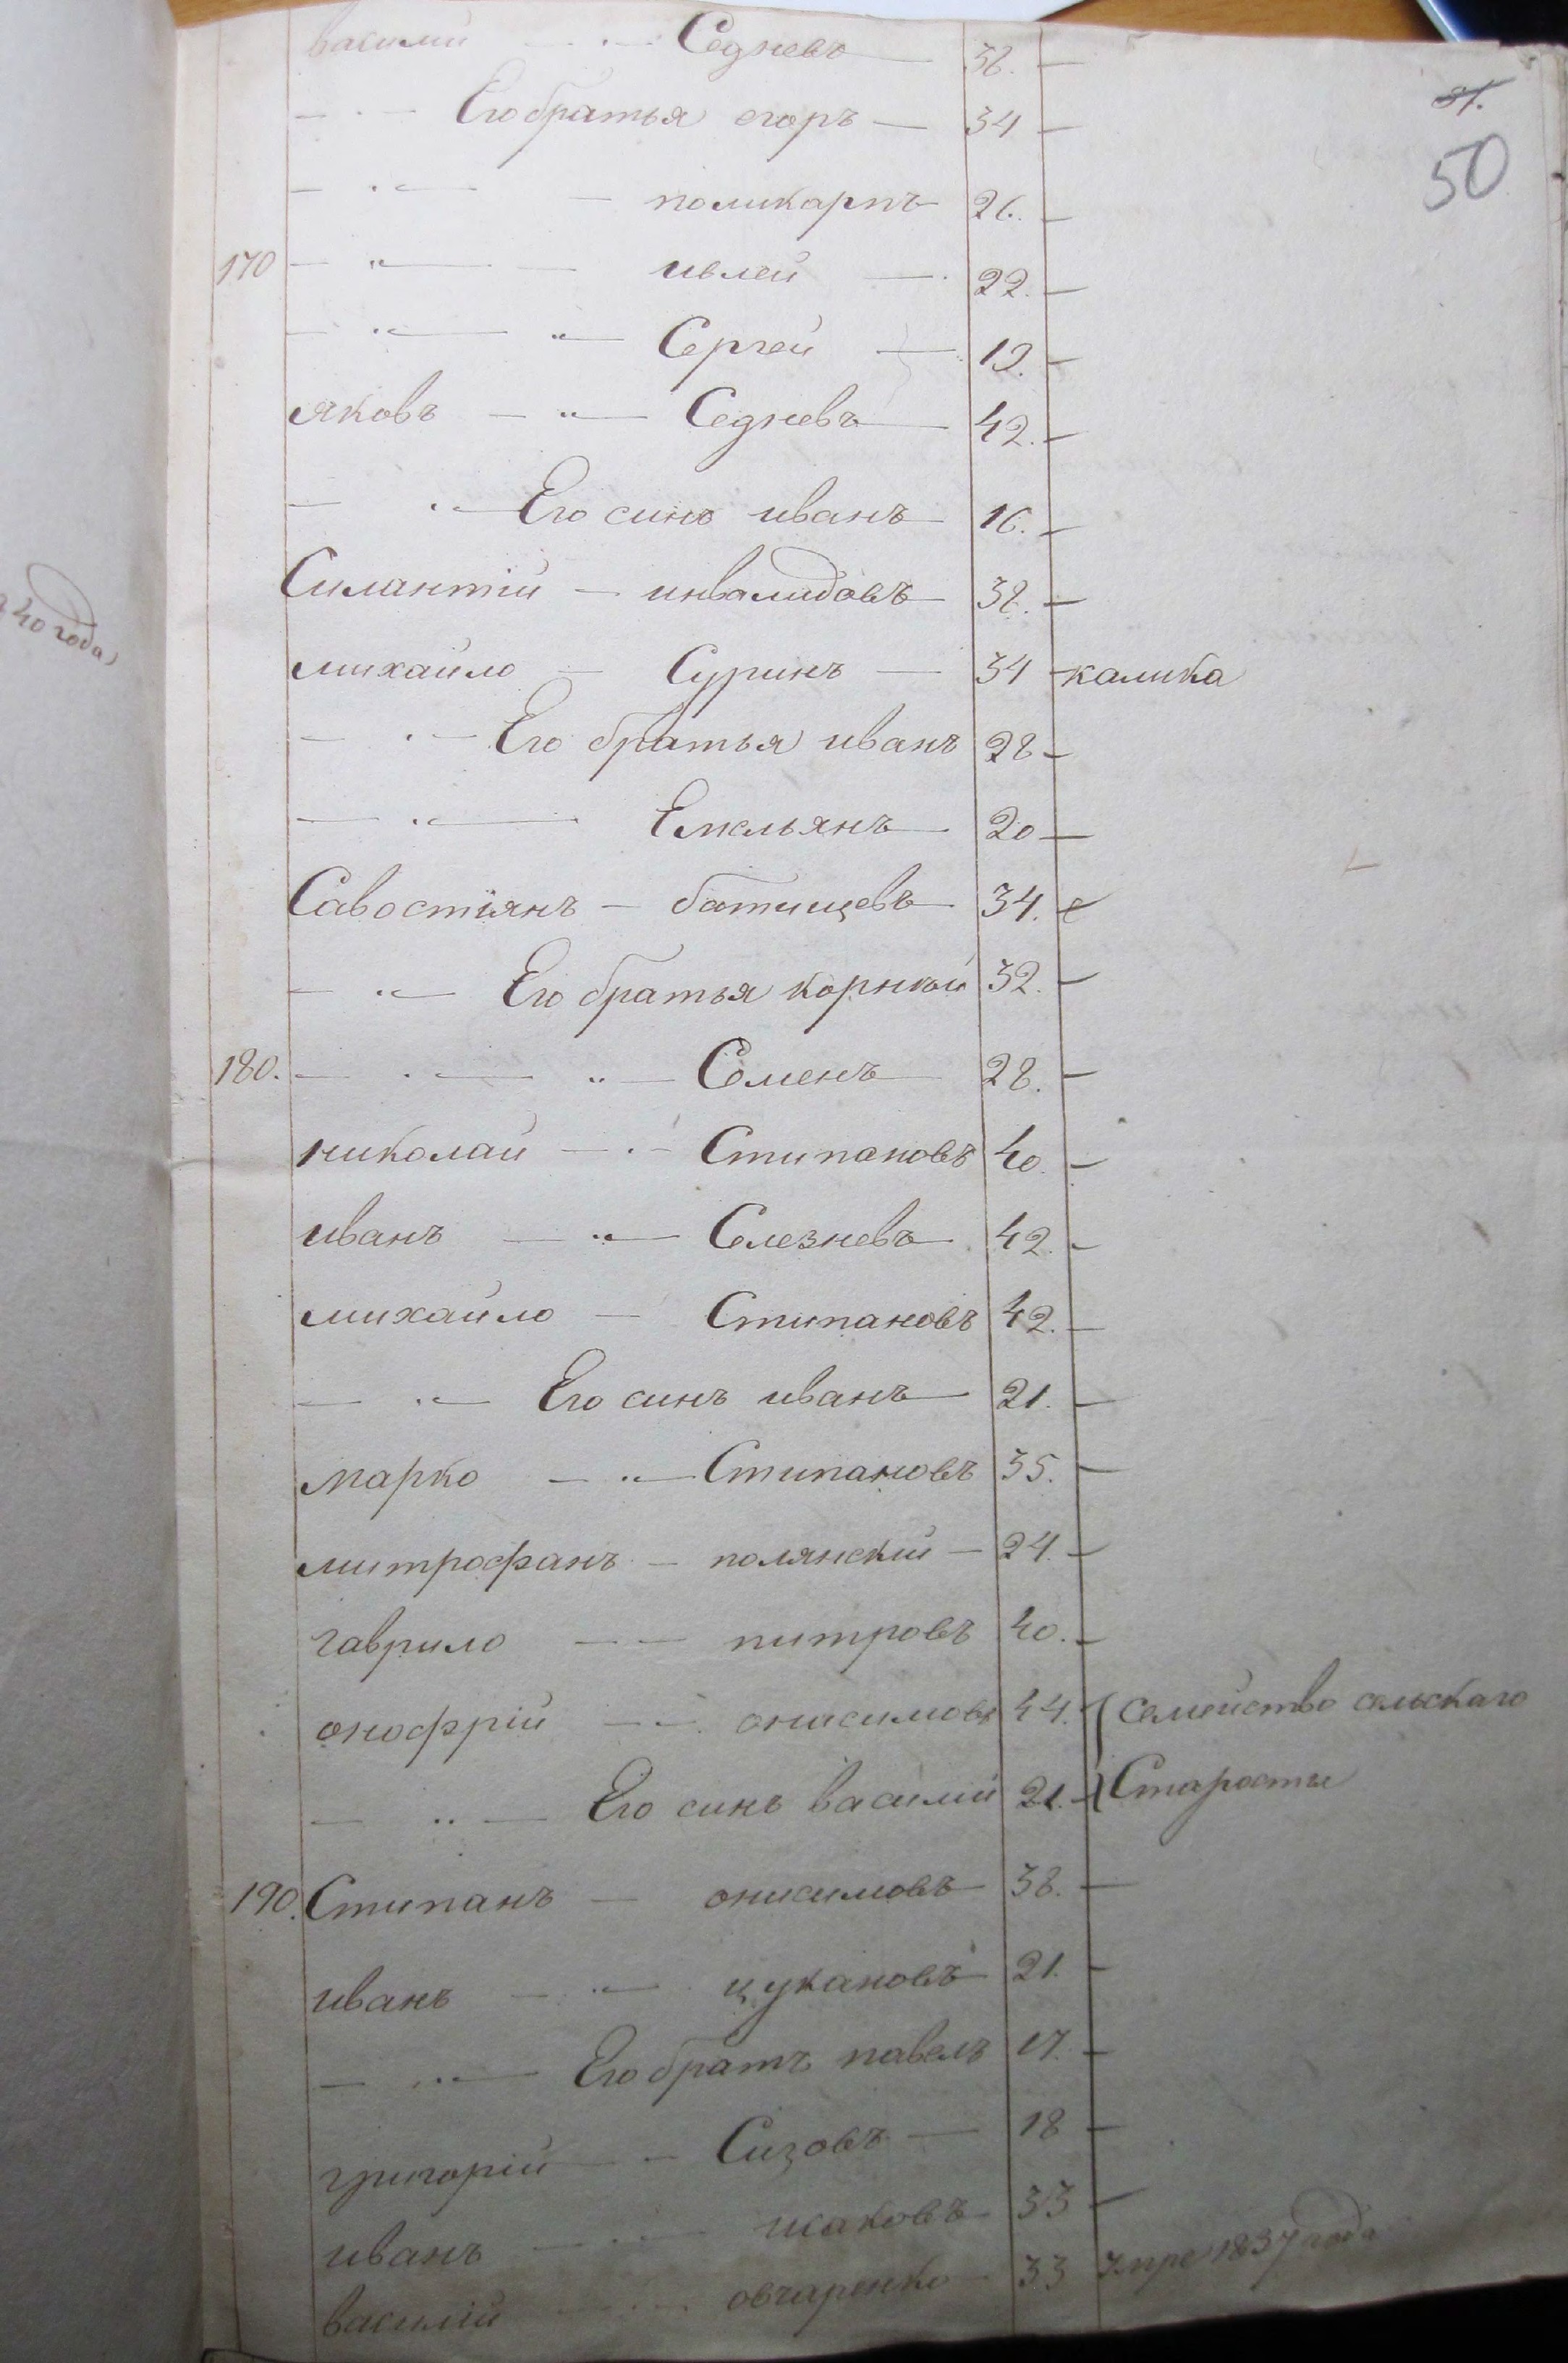 василий — · — Седневъ — 38. —
— · — Его братья егоръ — 34 —
— · — — поликарпъ — 26. —
170 — " — — ивлей — 22. —
— · — " — Сергей — 19. —
яковъ — " — Седневъ — 42. —
— · — Его синъ иванъ — 16. —
Силантий — инвалидовъ — 38. —
михайло — Суринъ — 34 — калика
— · — Его братья иванъ 28 —
— · — Емельянъ — 20 —
Савостіянъ — батищевъ — 34. —
— " — Его братья корней 32. —
180. — · — " — Семенъ — 28. —
николай — · — Стипановъ 40. —
иванъ — " — Селезневъ — 42. —
михайло — Стипановъ 42. —
— " — Его синъ иванъ — 21. —
марко — " — Стипановъ 35. —
митрофанъ — полянский — 24. —
гаврило — — питровъ 40. —
онофрій — · — онисимовъ 44. семейство сельскаго
— " — Его синъ василий 21. — Старосты
190. Стипанъ — онисимовъ — 38. —
иванъ — " — цукановъ — 21. —
— " — Его братъ павелъ 17. —
григорій — — Сизовъ — 18 —
иванъ — · — исаковъ — 33 —
василій — · — овчаренко — 33 умре 1837 года
81.
50
40 года